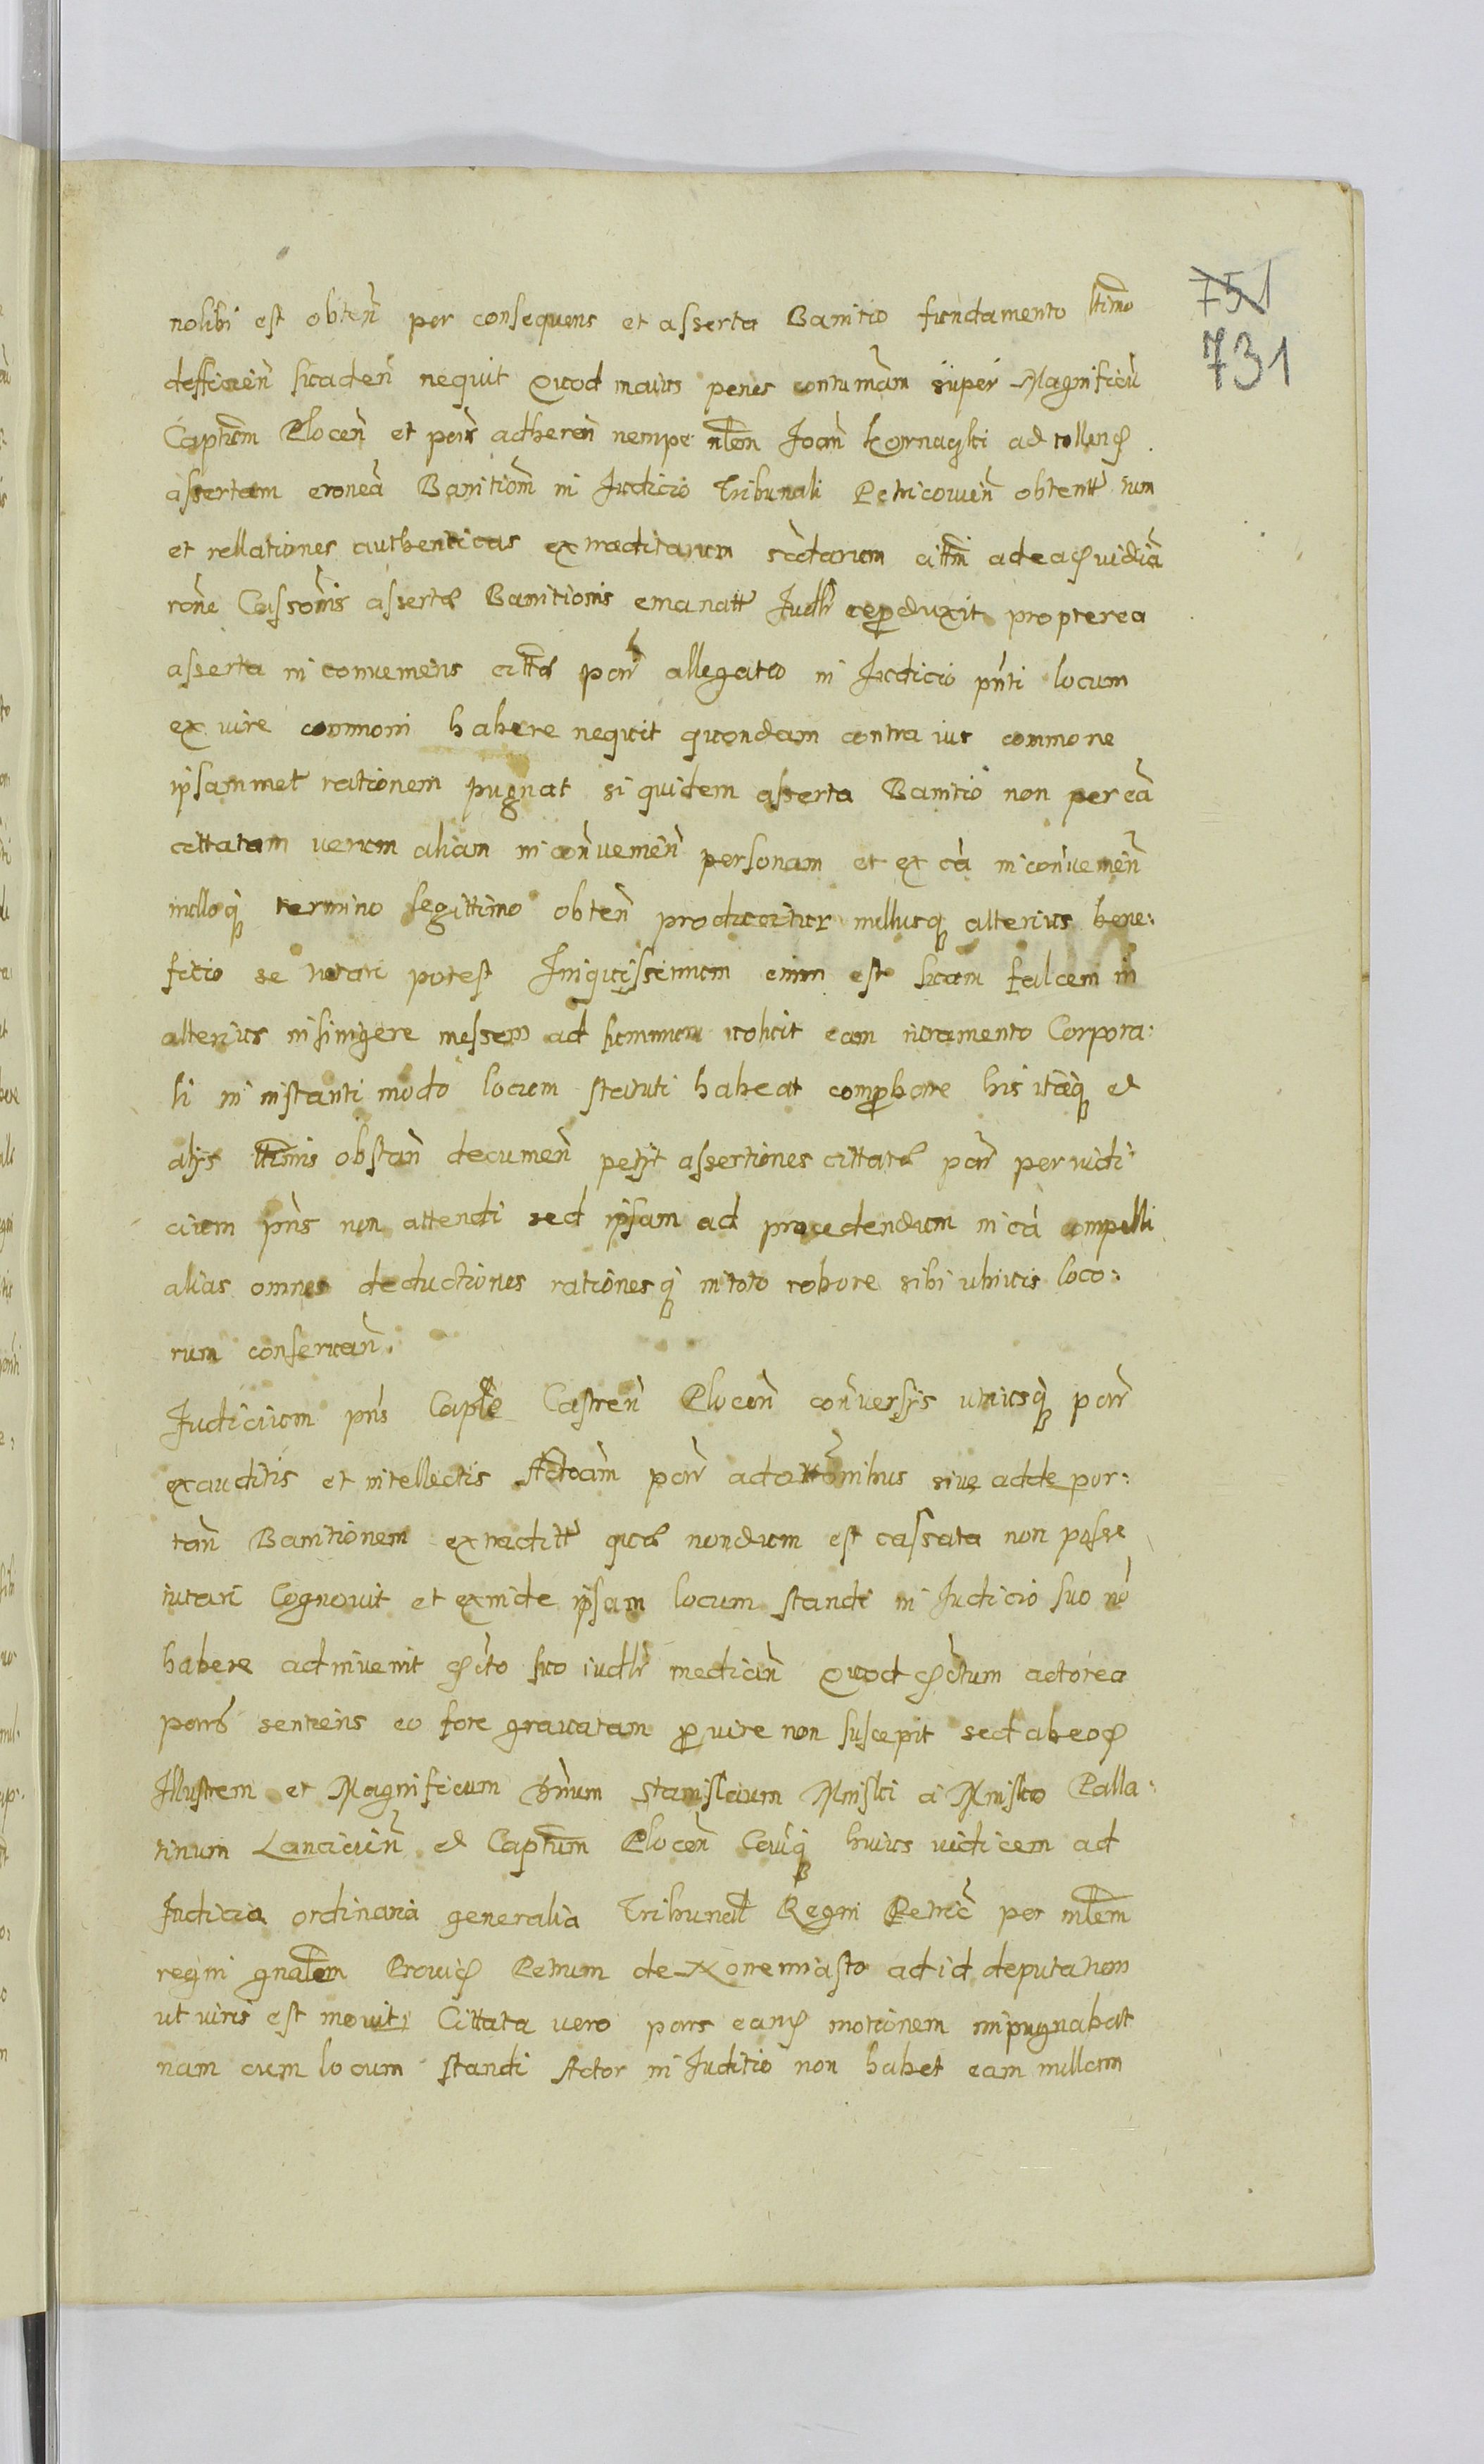 751
731
nolibi est obten̄ per consequens et asserta Banitio fundamento ltimo
defficien̄ suaden̄ nequit Quod maius penes contumām super Magnificū
Captum Plocen̄ et par̄ adheren̄ nempe nlem Joan̄ Kornaski ad tollenꝯ
assertam eroneā Banitionem in Judicio Tribunali Petricouien̄ obtentt tum
et rellationes authenticas extraditarum cittm̄ adeaꝯ vidiā
rōne Cassōnis assertæ Banitionis emanatt Judl̄r reproduxit propterea
asserta inconueniens cittæ par̄ allegatio in Judicio pn̄ti locum
ex iure commoni habere nequit quondam contra ius commone
ipsammet rationem pugnat siquidem asserta Banitio non per eā
cittatam uerum aliam inconuenien̄ personam et ex cā inconuenien̄
nulloq̄ termino legittimo obten̄ producitur nullusq̄ alterius bene:
ficio se tutari potest Iniquissimum enim est suam falcem in
alterius insingere messem ad summum uoluit eam iuramento Corpora:
li in instanti modo locum statuti habeat comprobare his itaq̄ et
alys ltimis obstan̄ documen̄ petyt assertiones cittatæ par̄ per iudi:
cium pn̄s non attendi sed ipsam ad procedendum in cā compelli
alias omnes deductiones rationesq̄ in toto robore sibi ubiuis loco:
rum conseruan̄.
Judicium pn̄s Caple Castren̄ Plocen̄ conuersys utriusq̄ par̄
exauditis et intellectis Actoām par̄ adcittōnibus siue addepor:
tan̄ Banitionem extraditt quæ nondum est cassata non posse
tutari Cognouit et exinde ipsam locum standi in Judicio suo nō
habere adinuenit ꝯcto suo iudl̄r median̄ Quod ꝯctum actorea
pars sentiens eo fore grauatam pro iure non suscepit sed ab eoꝯ
Illustrem et Magnificum Dnum Stanislaum Minski a Minsko Palla:
tinum Lancicien̄ et Captum Plocen̄ Ceuq̄ huius iudicem ad
Judicia ordinaria generalia Tribunal Regni Petric̄ per mlem
regni gnalem Prouiꝯ Petrum de Xonemiasto ad id deputatum
ut iuris est mouit; Cittata uero pars eanꝯ motionem impugnabat
nam cum locum standi Actor in Juditio non habet eam nullam